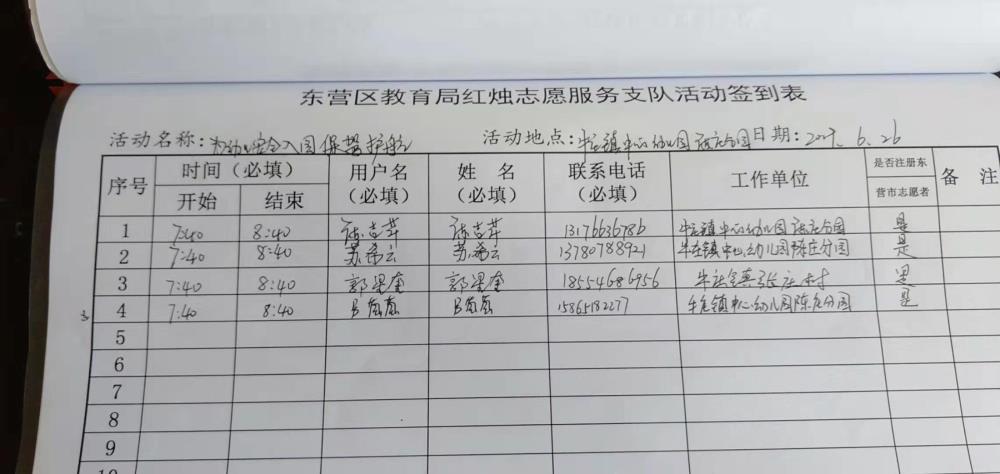 东营区教育局红烛志愿服务支队活动签到表
活动名称:为幼儿安全入园保驾护航 活动地点:牛庄镇中心幼儿园陈庄分园 日期: 6.26
序号 时间(必填) 开始 结束 用户名(必填) 姓名(必填) 联系电话(必填) 工作单位 是否注册东营市志愿者 备注
1 7:40 8:40 13176636786 牛庄镇中心幼儿园陈庄分园 是
2 7:40 8:40 苏希云 苏希云 13780788921 牛庄镇中心幼儿园陈庄分园 是
3 7:40 8:40 郭 奎 郭 奎 18554686956 牛庄镇张庄村 是
4 7:40 8:40 15865182277 牛庄镇中心幼儿园陈庄分园 是
5
6
7
8
9
10